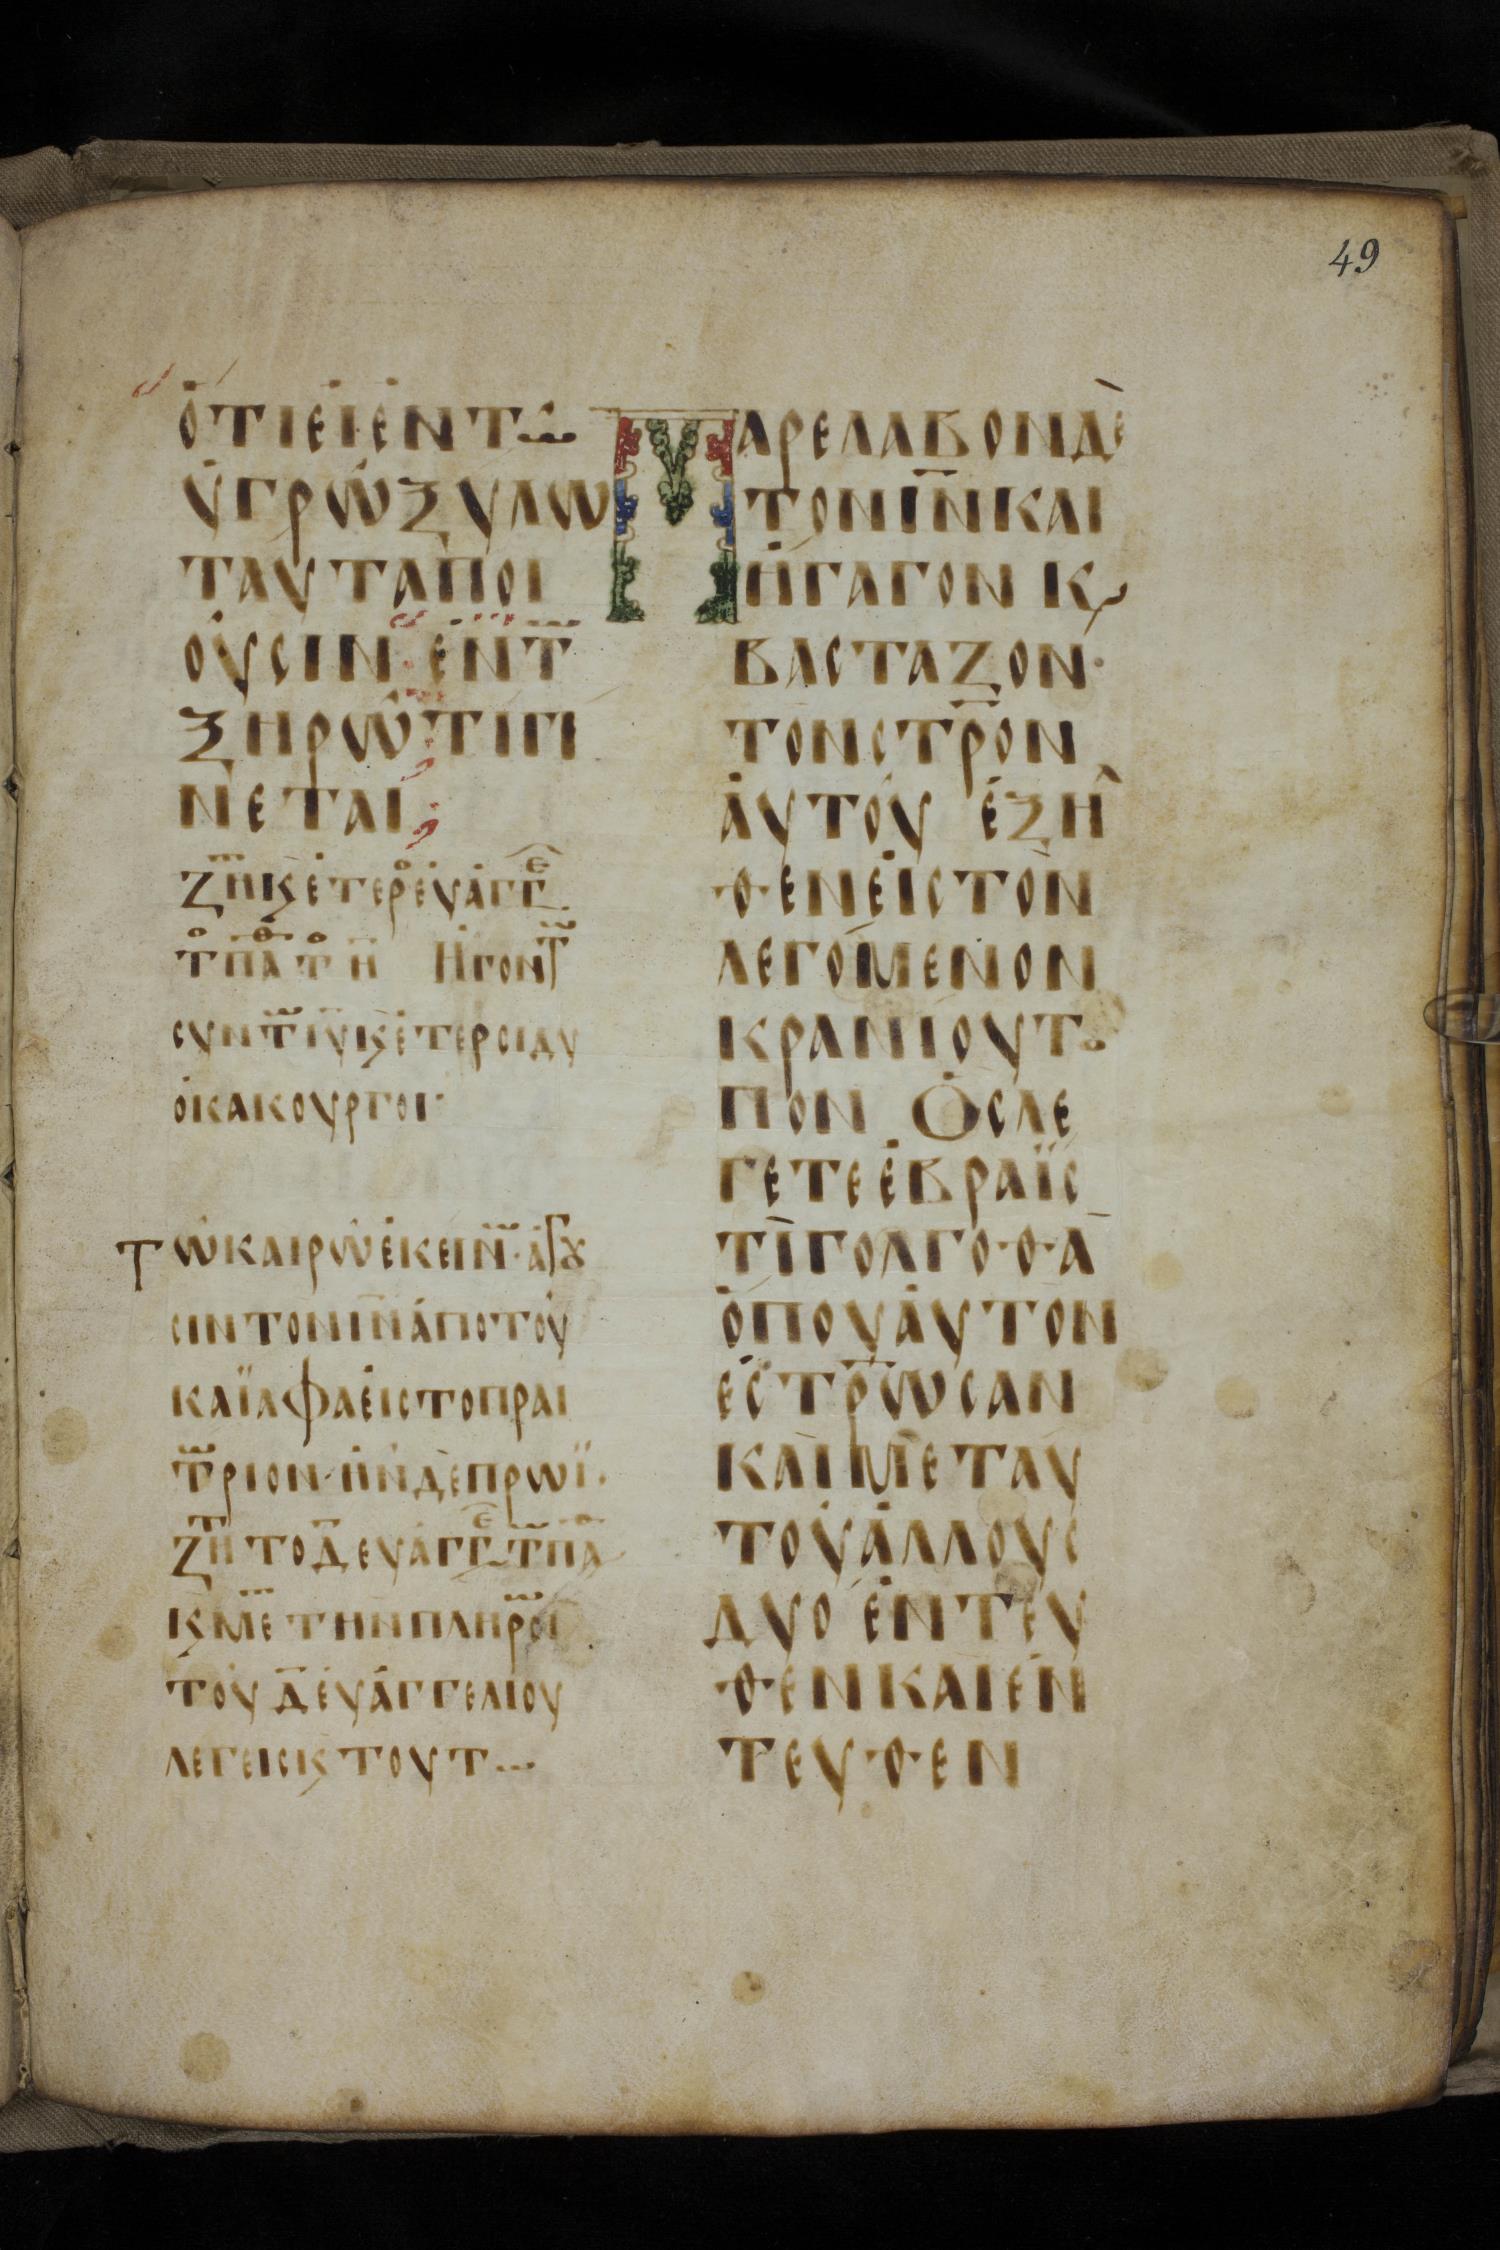 49
ὍΤΙΕἸἘΝΤΩ
ὙΓΡΩΞΥΛΩ
ΤΑΥΤΑΠΟΙ
ΟΥΣΙΝ ἘΝΤ
ΞΗΡΩΤΙΓΙ
ΝΕΤΑΙ;
ΖΗΚ̣ἘΤΕΡΕΥΑΓΓ
ΤΠΑΤΗ ΗΓΟΝΤ
ϹΥΝΤΙΥΚἘΤΕΡΟΙΔΥ
ὈΚΑΚΟΥΡΓΟΙ·
ΤΩΚΑΙΡΩἘΚΕΙΝ·ἈΓȢ
ϹΙΝΤΟΝΙ̅Ν̅ἈΠΟΤΟΥ
ΚΑΪΑΦΑἘΙϹΤΟΠΡΑΙ
ΤΡΙΟΝ·ΗΝΔΕΠΡΩΪ·
ΖΗΤΟΔ̅ΕΥΑΓΓΤΠΑ
ΚΜΕΤΗΝΠΛΗΡΟΙ
ΤΟΥΔ̅ΕΥΑΓΓΕΛΙΟΥ
ΛΕΓΕΙϹΚΤΟΥΤ
ΠΑΡΕΛΑΒΟΝΔΕ
ΤΟΝΙ̅Ν̅ΚΑΙ
ΗΓΑΓΟΝ Κ
ΒΑϹΤΑΖΟΝ·
ΤΟΝϹΤ̅Ρ̅ΟΝ
ἈΥΤΟΥ ἘΞΗΛ
ΘΕΝΕἸϹΤΟΝ
ΛΕΓΟΜΕΝΟΝ
ΚΡΑΝΙΟΥΤΟ
ΠΟΝ ὈϹΛΕ
ΓΕΤΕἘΒΡΑΪϹ
ΤΙΓΟΛΓΟΘΑ
ὉΠΟΥἈΥΤΟΝ
ἘϹΤ̅Ρ̅ΩϹΑΝ
ΚΑΙΜΕΤΑΥ
ΤΟΥἈΛΛΟΥϹ
ΔΥΟ ἘΝΤΕΥ
ΘΕΝΚΑΙἘΝ
ΤΕΥΘΕΝ